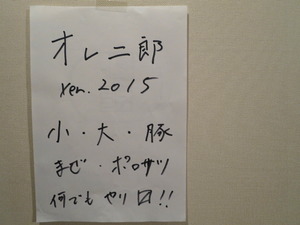 オレ二郎
ver. 2015
小・大・豚
まぜ・ポロサツ
何でもやり〼!!